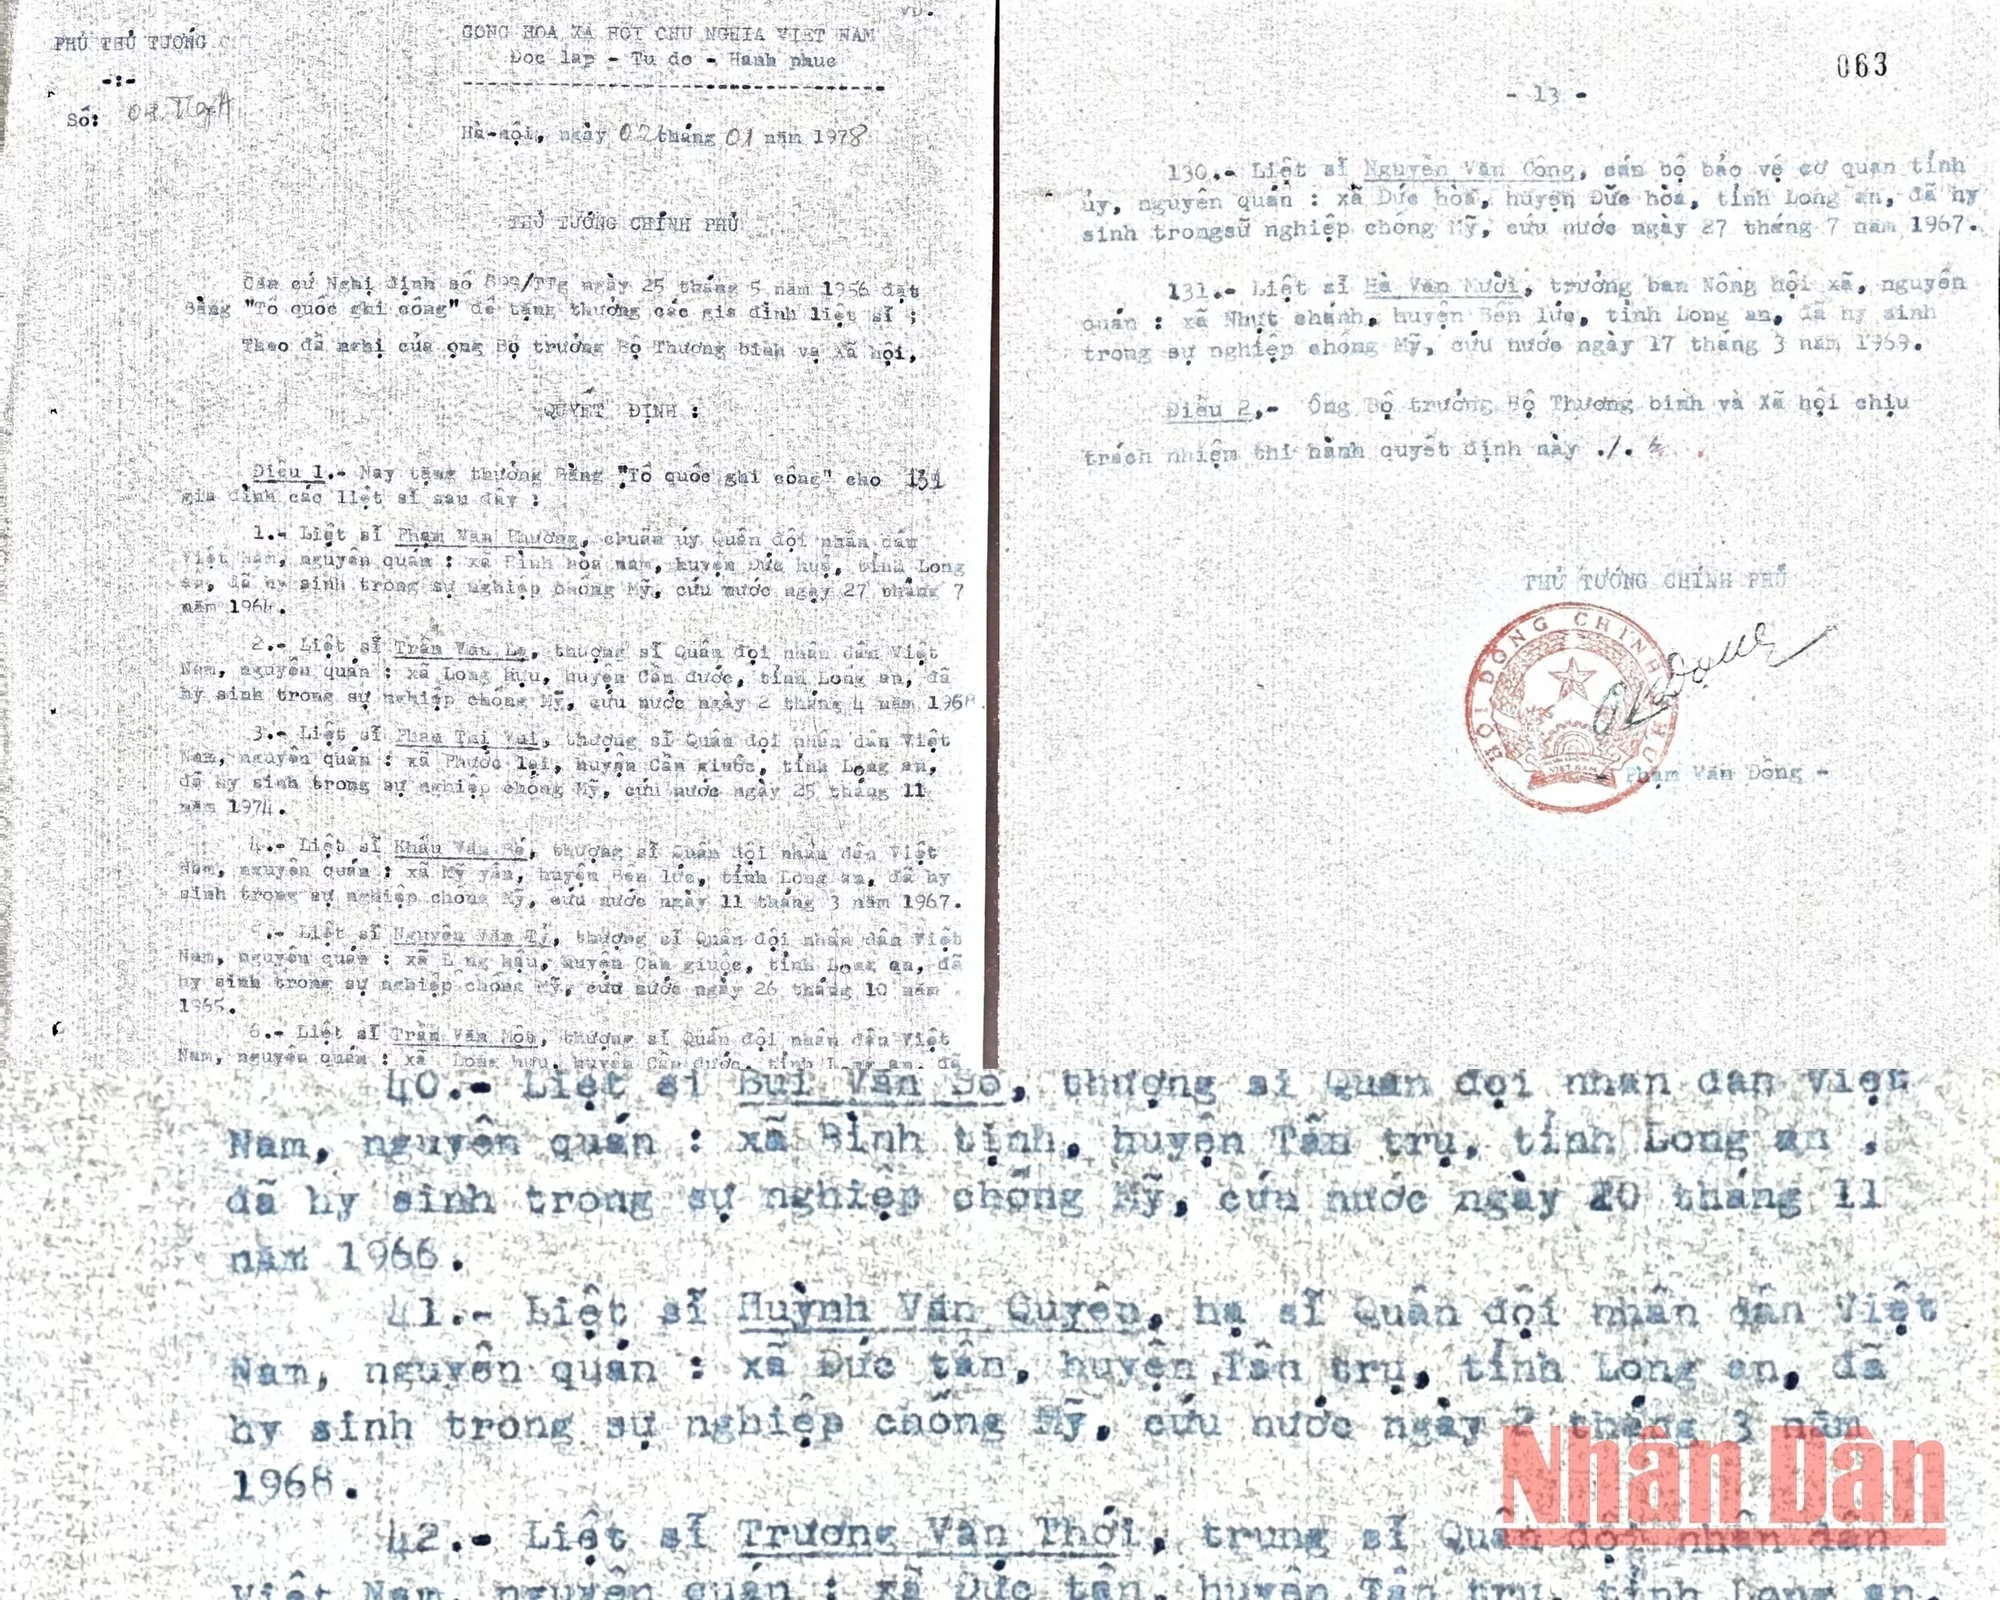 PHỦ THỦ TƯỚNG
-:-
Số:
CỘNG HÒA XÃ HỘI CHỦ NGHĨA VIỆT NAM
Độc lập - Tự do - Hạnh phúc
Hà-nội, ngày 02 tháng 01 năm 1978
THỦ TƯỚNG CHÍNH PHỦ
Căn cứ Nghị định số /TTg ngày 25 tháng 5 năm 1956 đặt
Bằng "Tổ quốc ghi công" để tặng thưởng các gia đình liệt sĩ ;
Theo đề nghị của ông Bộ trưởng Bộ Thương binh và Xã hội,
QUYẾT ĐỊNH :
Điều 1.- Nay tặng thưởng Bằng "Tổ quốc ghi công" cho 131
gia đình các liệt sĩ sau đây :
1.- Liệt sĩ Phạm Văn Phường, chuẩn úy Quân đội nhân dân
Việt Nam, nguyên quán : xã Bình hòa nam, huyện Đức huệ, tỉnh Long
an, đã hy sinh trong sự nghiệp chống Mỹ, cứu nước ngày 27 tháng 7
năm 1964.
2.- Liệt sĩ Trần Văn Le, thượng sĩ Quân đội nhân dân Việt
Nam, nguyên quán : xã Long hựu, huyện Cần đước, tỉnh Long an, đã
hy sinh trong sự nghiệp chống Mỹ, cứu nước ngày 2 tháng 4 năm 1968.
3.- Liệt sĩ Phan Thị Vui, thượng sĩ Quân đội nhân dân Việt
Nam, nguyên quán : xã Phước lại, huyện Cần giuộc, tỉnh Long an,
đã hy sinh trong sự nghiệp chống Mỹ, cứu nước ngày 25 tháng 11
năm 1974.
4.- Liệt sĩ Khấu Văn Bé, thượng sĩ Quân đội nhân dân Việt
Nam, nguyên quán : xã Mỹ yên, huyện Bến lức, tỉnh Long an, đã hy
sinh trong sự nghiệp chống Mỹ, cứu nước ngày 11 tháng 3 năm 1967.
5.- Liệt sĩ Nguyễn Văn Tý, thượng sĩ Quân đội nhân dân Việt
Nam, nguyên quán : xã Long hậu, huyện Cần giuộc, tỉnh Long an, đã
hy sinh trong sự nghiệp chống Mỹ, cứu nước ngày 26 tháng 10 năm
1965.
6.- Liệt sĩ Trần Văn Một, thượng sĩ Quân đội nhân dân Việt
Nam, nguyên quán : xã Long hựu, huyện Cần đước, tỉnh Long an, đã
063
- 13 -
130.- Liệt sĩ Nguyễn Văn Công, cán bộ bảo vệ cơ quan tỉnh
ủy, nguyên quán : xã Đức hòa, huyện Đức hòa, tỉnh Long an, đã hy
sinh trong sự nghiệp chống Mỹ, cứu nước ngày 27 tháng 7 năm 1967.
131.- Liệt sĩ Hà Văn Mười, trưởng ban Nông hội xã, nguyên
quán : xã Nhựt chánh, huyện Bến lức, tỉnh Long an, đã hy sinh
trong sự nghiệp chống Mỹ, cứu nước ngày 17 tháng 3 năm 1969.
Điều 2.- Ông Bộ trưởng Bộ Thương binh và Xã hội chịu
trách nhiệm thi hành quyết định này ./.
THỦ TƯỚNG CHÍNH PHỦ
HỘI ĐỒNG CHÍNH PHỦ
VIỆT NAM
- Phạm Văn Đồng -
40.- Liệt sĩ Bùi Văn Sô, thượng sĩ Quân đội nhân dân Việt
Nam, nguyên quán : xã Bình tịnh, huyện Tân trụ, tỉnh Long an ,
đã hy sinh trong sự nghiệp chống Mỹ, cứu nước ngày 20 tháng 11
năm 1966.
41.- Liệt sĩ Huỳnh Văn Quyên, hạ sĩ Quân đội nhân dân Việt
Nam, nguyên quán : xã Đức tân, huyện Tân trụ, tỉnh Long an, đã
hy sinh trong sự nghiệp chống Mỹ, cứu nước ngày 2 tháng 3 năm
1968.
42.- Liệt sĩ Trương Văn Thới, trung sĩ Quân đội nhân dân
Việt Nam, nguyên quán : xã Đức tân, huyện Tân trụ, tỉnh Long an,
Nhân Dân